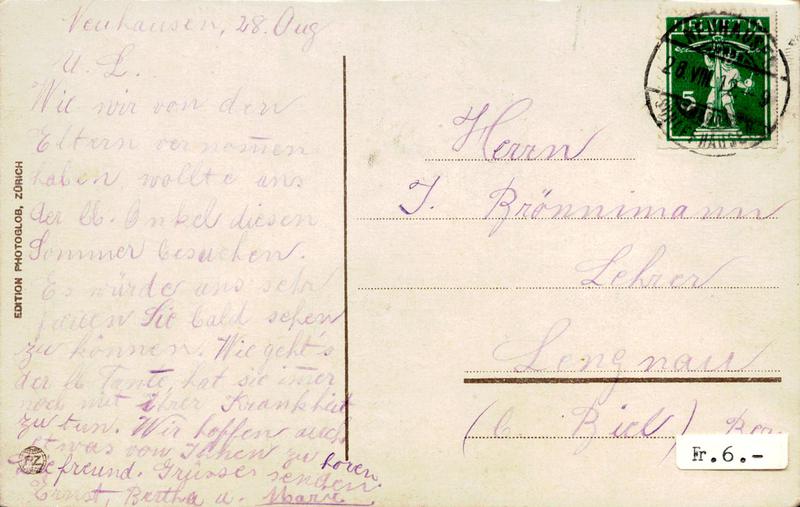 Neuhausen, 28. Aug
U. L.
Wie wir von den
Eltern vernom̅en
haben, wollte uns
der lb. Onkel diesen
Sommer besuchen.
Es würde uns sehr
freuen Sie bald sehen
zu können. Wie geht's
der lb Tante, hat sie im̅er
noch mit ihrer Krankheit
zu tun. Wir hoffen auch
etwas von Ihnen zu hören.
freund. Grüsse senden
Ernst, Bertha u. Marie
EDITION PHOTOGLOB, ZÜRICH
PZ
HELVETIA
5
NEUHAUSEN
28.VIII.
Herrn
J. Brönnimann
Lehrer
Lengnau
(b Biel) Ber
Fr.6.-